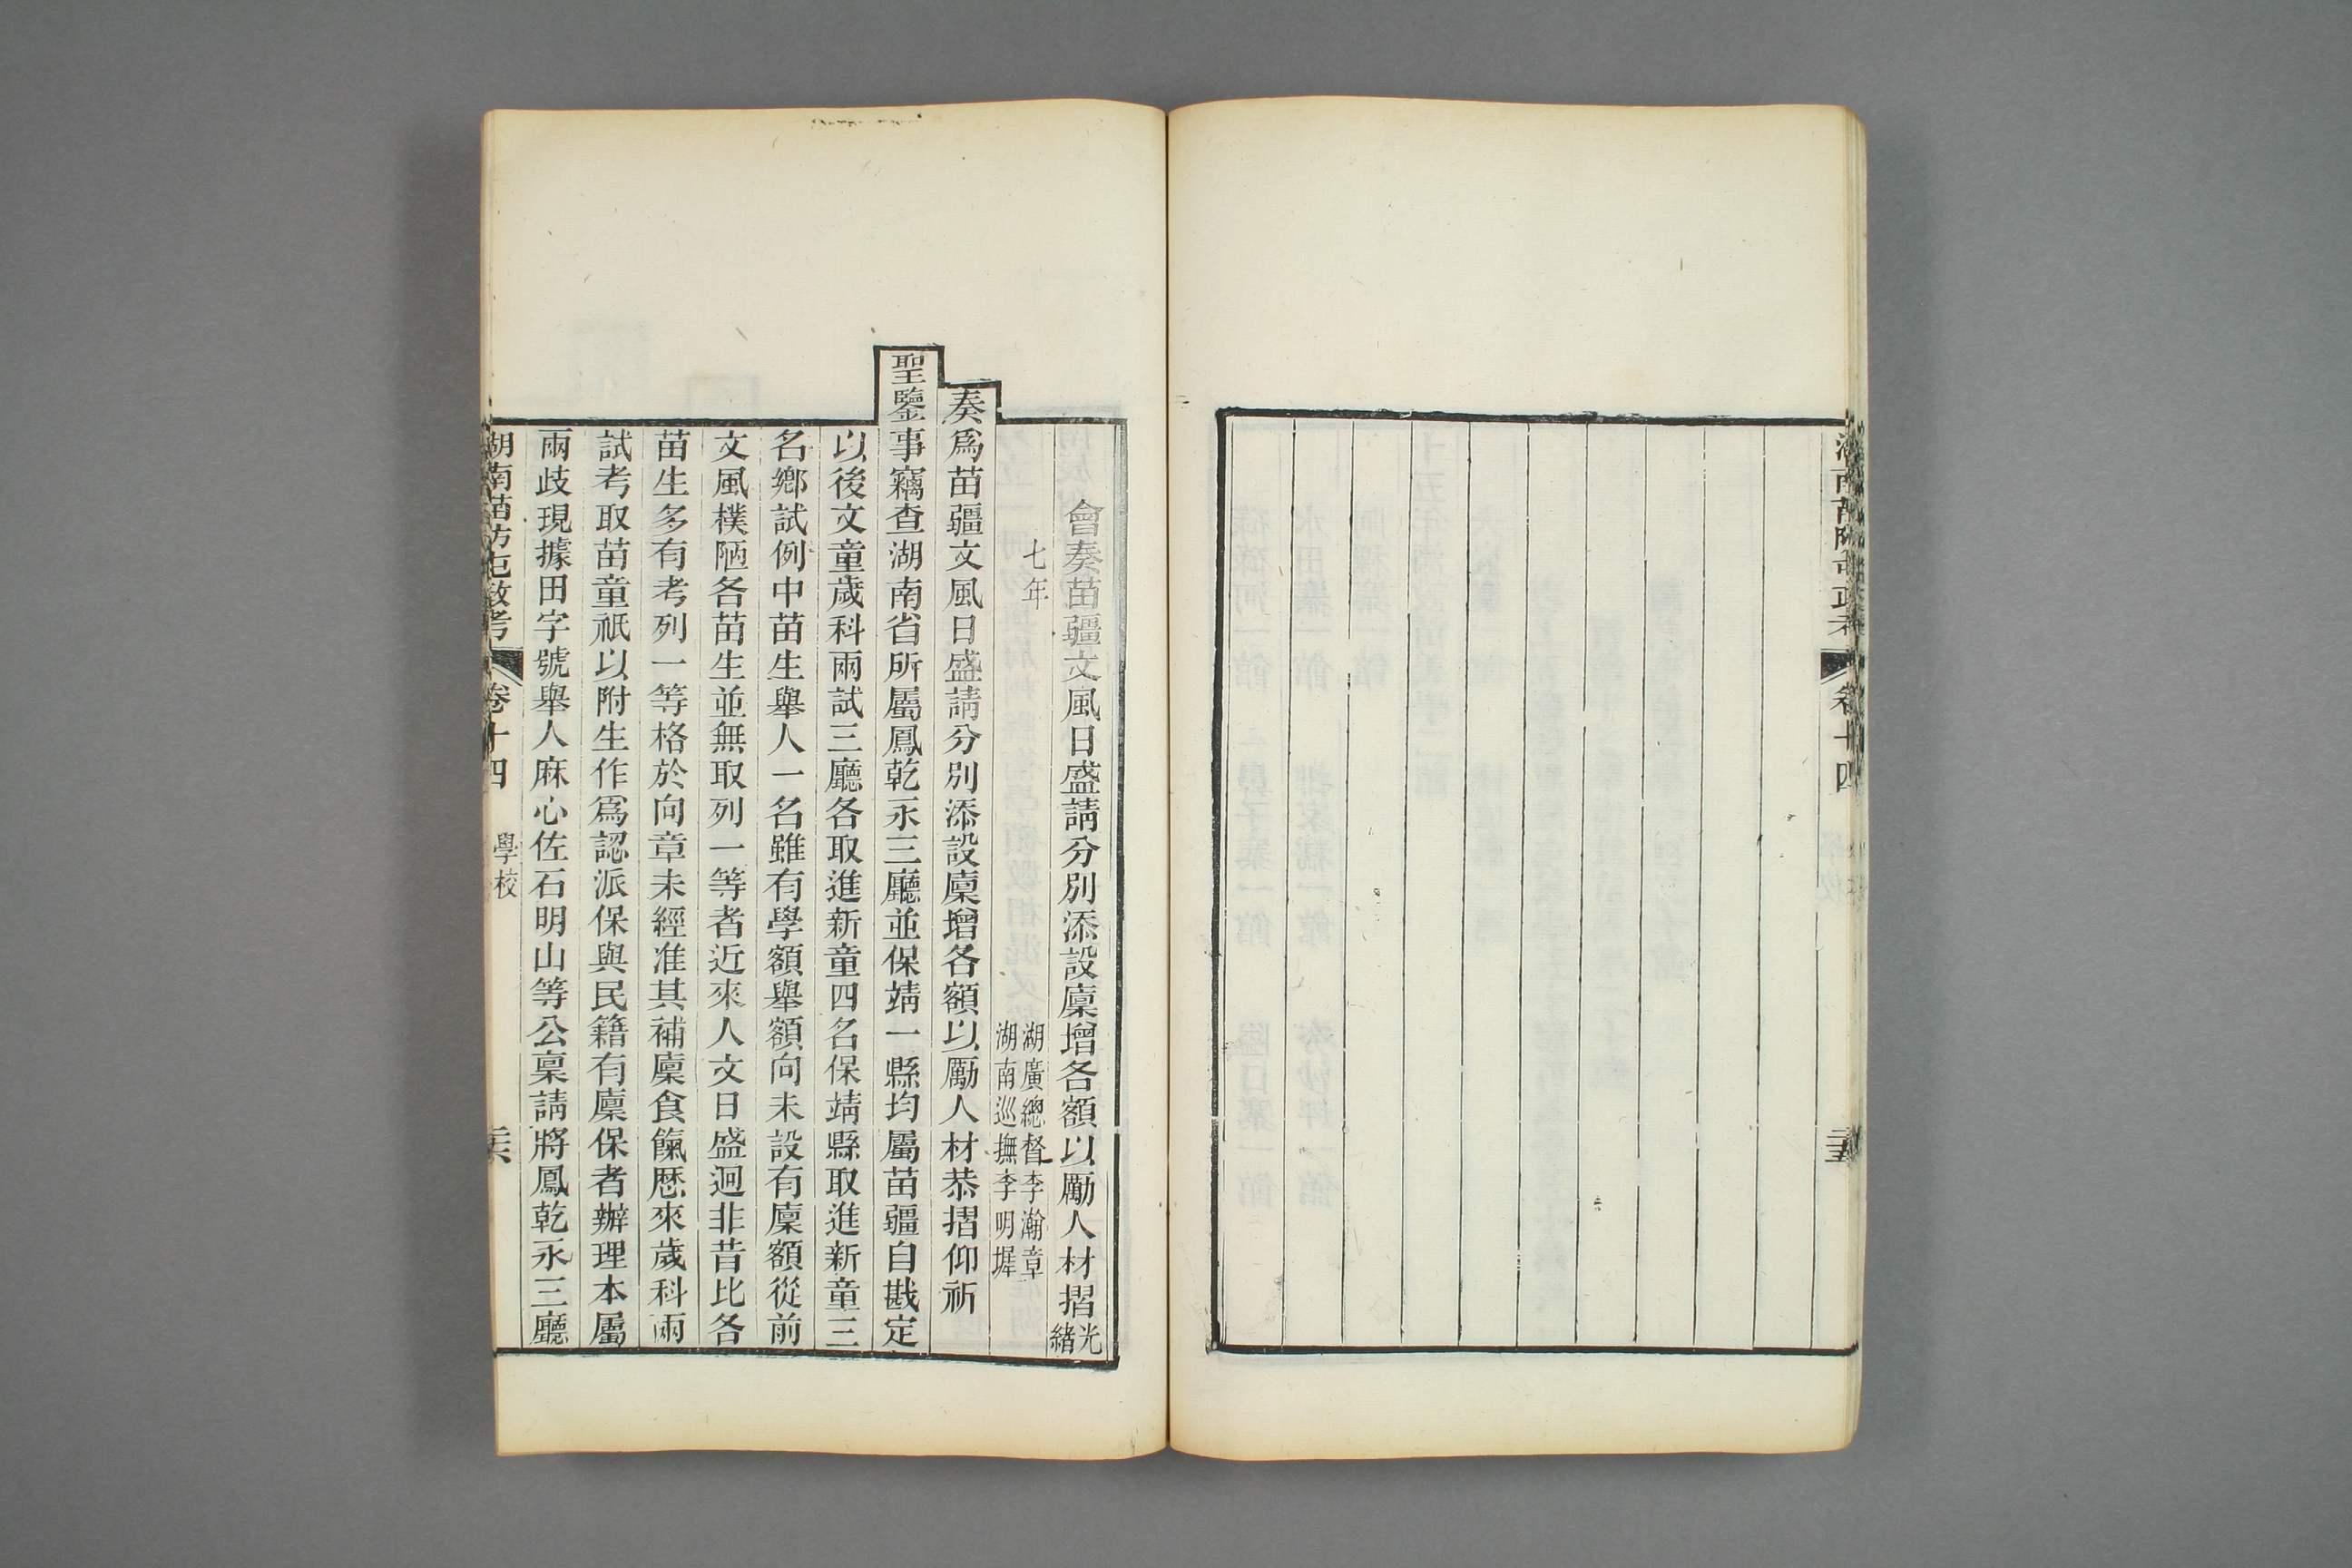 湖南苗防屯政考
卷十四
二十五
會奏苗疆文風日盛請分別添設廩增各額以勵人材摺光緒
七年
湖廣總督李瀚章
湖南巡撫李明墀
奏爲苗疆文風日盛請分別添設廩增各額以勵人材恭摺仰祈
聖鑒事竊查湖南省所屬鳳乾永三廳並保靖一縣均屬苗疆自戡定
以後文童歲科兩試三廳各取進新童四名保靖縣取進新童三
名鄉試例中苗生舉人一名雖有學額舉額向未設有廩額從前
文風樸陋各苗生並無取列一等者近來人文日盛迥非昔比各
苗生多有考列一等格於向章未經准其補廩食餼歷來歲科兩
試考取苗童祇以附生作爲認派保與民籍有廩保者辦理本屬
兩歧現據田字號舉人麻心佐石明山等公稟請將鳳乾永三廳
湖南苗防屯政考
卷十四
學校
二十六